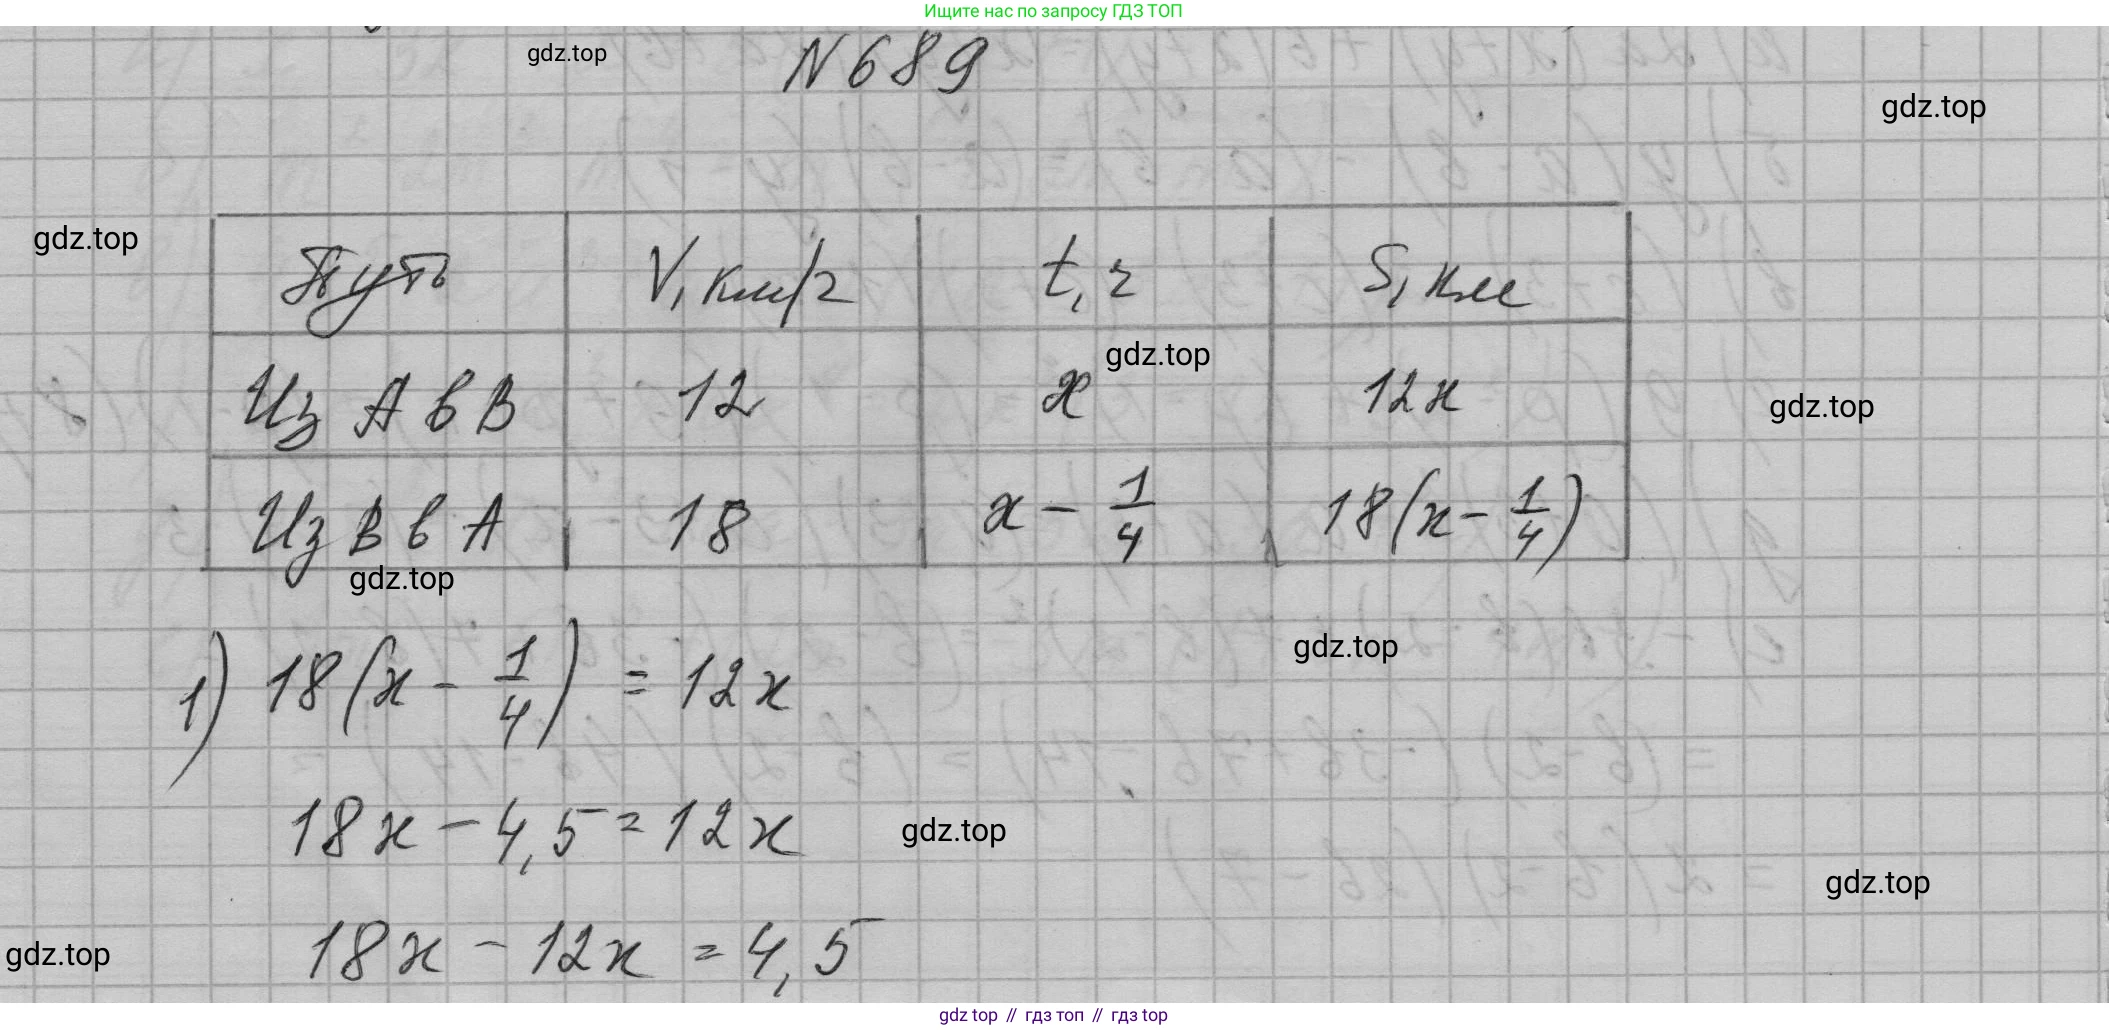 Ищите нас по запросу ГДЗ ТОП
gdz.top
N 689
gdz.top
gdz.top
Путь V, км/ч t, ч S, км
gdz.top
Из А в В 12 x 12x
gdz.top
Из В в А 18 x - 1/4 18(x - 1/4)
gdz.top
gdz.top
1) 18(x - 1/4) = 12x
18x - 4,5 = 12x
gdz.top
gdz.top
18x - 12x = 4,5
gdz.top
gdz top // гдз топ // гдз top